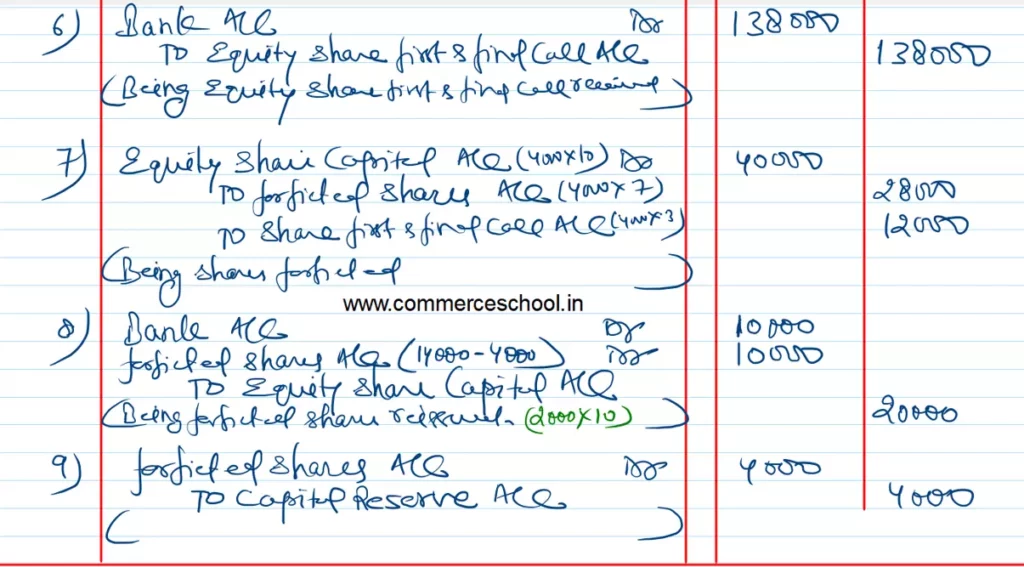 6) Bank A/c Dr 138000
To Equity Share first & final Call A/c 138000
(Being Equity Share first & final call received)
7) Equity Share Capital A/c (4000x10) Dr 40000
To forfieted Shares A/c (4000x7) 28000
To Share first & final Call A/c (4000x3) 12000
(Being shares forfieted)
www.commerceschool.in
8) Bank A/c Dr 10000
forfieted shares A/c (14000-4000) Dr 10000
To Equity Share Capital A/c
(Being forfieted share reissued. (2000x10)) 20000
9) forfieted Shares A/c Dr 4000
To Capital Reserve A/c 4000
( )